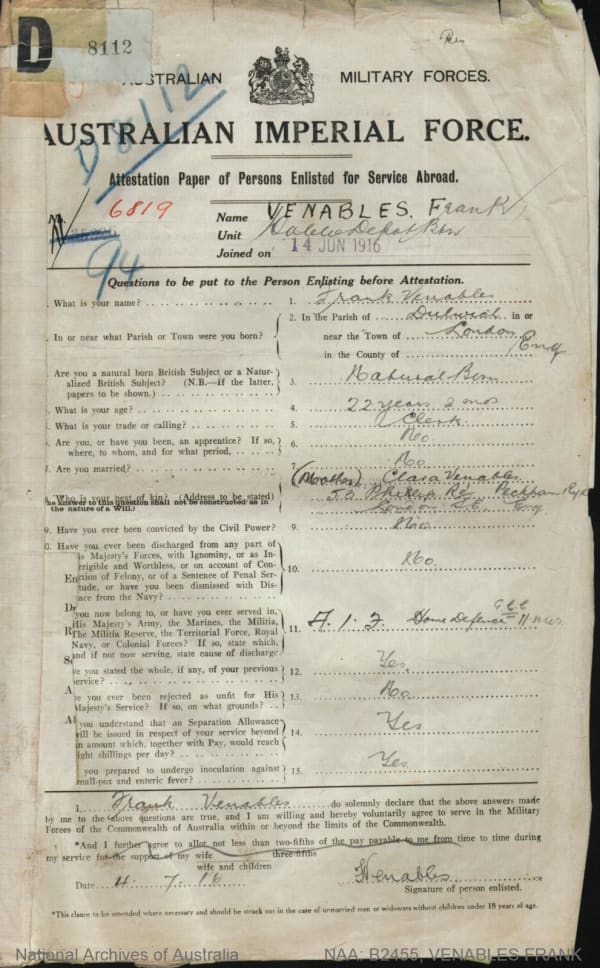 D 8112
Res
AUSTRALIAN MILITARY FORCES.
AUSTRALIAN IMPERIAL FORCE.
D 8112
Attestation Paper of Persons Enlisted for Service Abroad.
6819
Name VENABLES. Frank
Unit Depot
Joined on 14 JUN 1916
94
Questions to be put to the Person Enlisting before Attestation.
. What is your name? 1. Frank Venables
. In or near what Parish or Town were you born? 2. In the Parish of Dulwich in or
near the Town of London
in the County of Eng
. Are you a natural born British Subject or a Natur-
alized British Subject? (N.B.—if the latter,
papers to be shown.) 3. Natural Born
. What is your age? 4. 22 years 2 mos
. What is your trade or calling? 5. Clerk
. Are you, or have you been, an apprentice? If so,
where, to whom, and for what period, 6. No
. Are you married? 7. No
. Who is your next of kin? (Address to be stated) (Mother) Clara Venables
The answer to this question shall not be construed as in
the nature of a Will.) 50 Rd Peckham Rye
London S.E. Eng
9. Have you ever been convicted by the Civil Power? 9. No
0. Have you ever been discharged from any part of
is Majesty's Forces, with Ignominy, or as In-
rrigible and Worthless, or on account of Con-
En ction of Felony, or of a Sentence of Penal Ser-
tude, or have you been dismissed with Dis-
ace from the Navy? 10. No.
D you now belong to, or have you ever served in,
His Majesty's Army, the Marines, the Militia,
The Militia Reserve, the Territorial Force, Royal
Navy, or Colonial Forces? If so, state which,
and if not now serving, state cause of discharge 11. A.I.F. Home Defence 11 mos
ve you stated the whole, if any, of your previous
service? 12. Yes.
A re you ever been rejected as unfit for His
Majesty's Service? If so, on what grounds? 13. No
A you understand that no Separation Allowance
will be issued in respect of your service beyond
n amount which, together with Pay, would reach
ight shillings per day? 14. Yes
you prepared to undergo inoculation against
small-pox and enteric fever? 15. Yes.
I, Frank Venables do solemnly declare that the above answers made
by me to the above questions are true, and I am willing and hereby voluntarily agree to serve in the Military
Forces of the Commonwealth of Australia within or beyond the limits of the Commonwealth.
*And I further agree to allot not less than two-fifths of the pay payable to me from time to time during
three-fifths
my service for the support of my wife
wife and children
Date 4. 7. 16 FVenables
Signature of person enlisted.
*This clause to be amended where necessary and should be struck out in the case of unmarried men or widowers without children under 18 years of age.
National Archives of Australia NAA: B2455, VENABLES FRANK